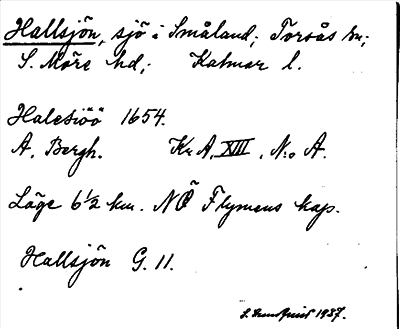 Hallsjön, sjö i Småland; Torsås sn;
S. Möre hd; Kalmar l.
Halesiöö 1654.
A. Bergh. Kr A, XIII, N:o A.
Läge 6½ km. NÖ Flymens kap.
Hallsjön G. 11.
1937.